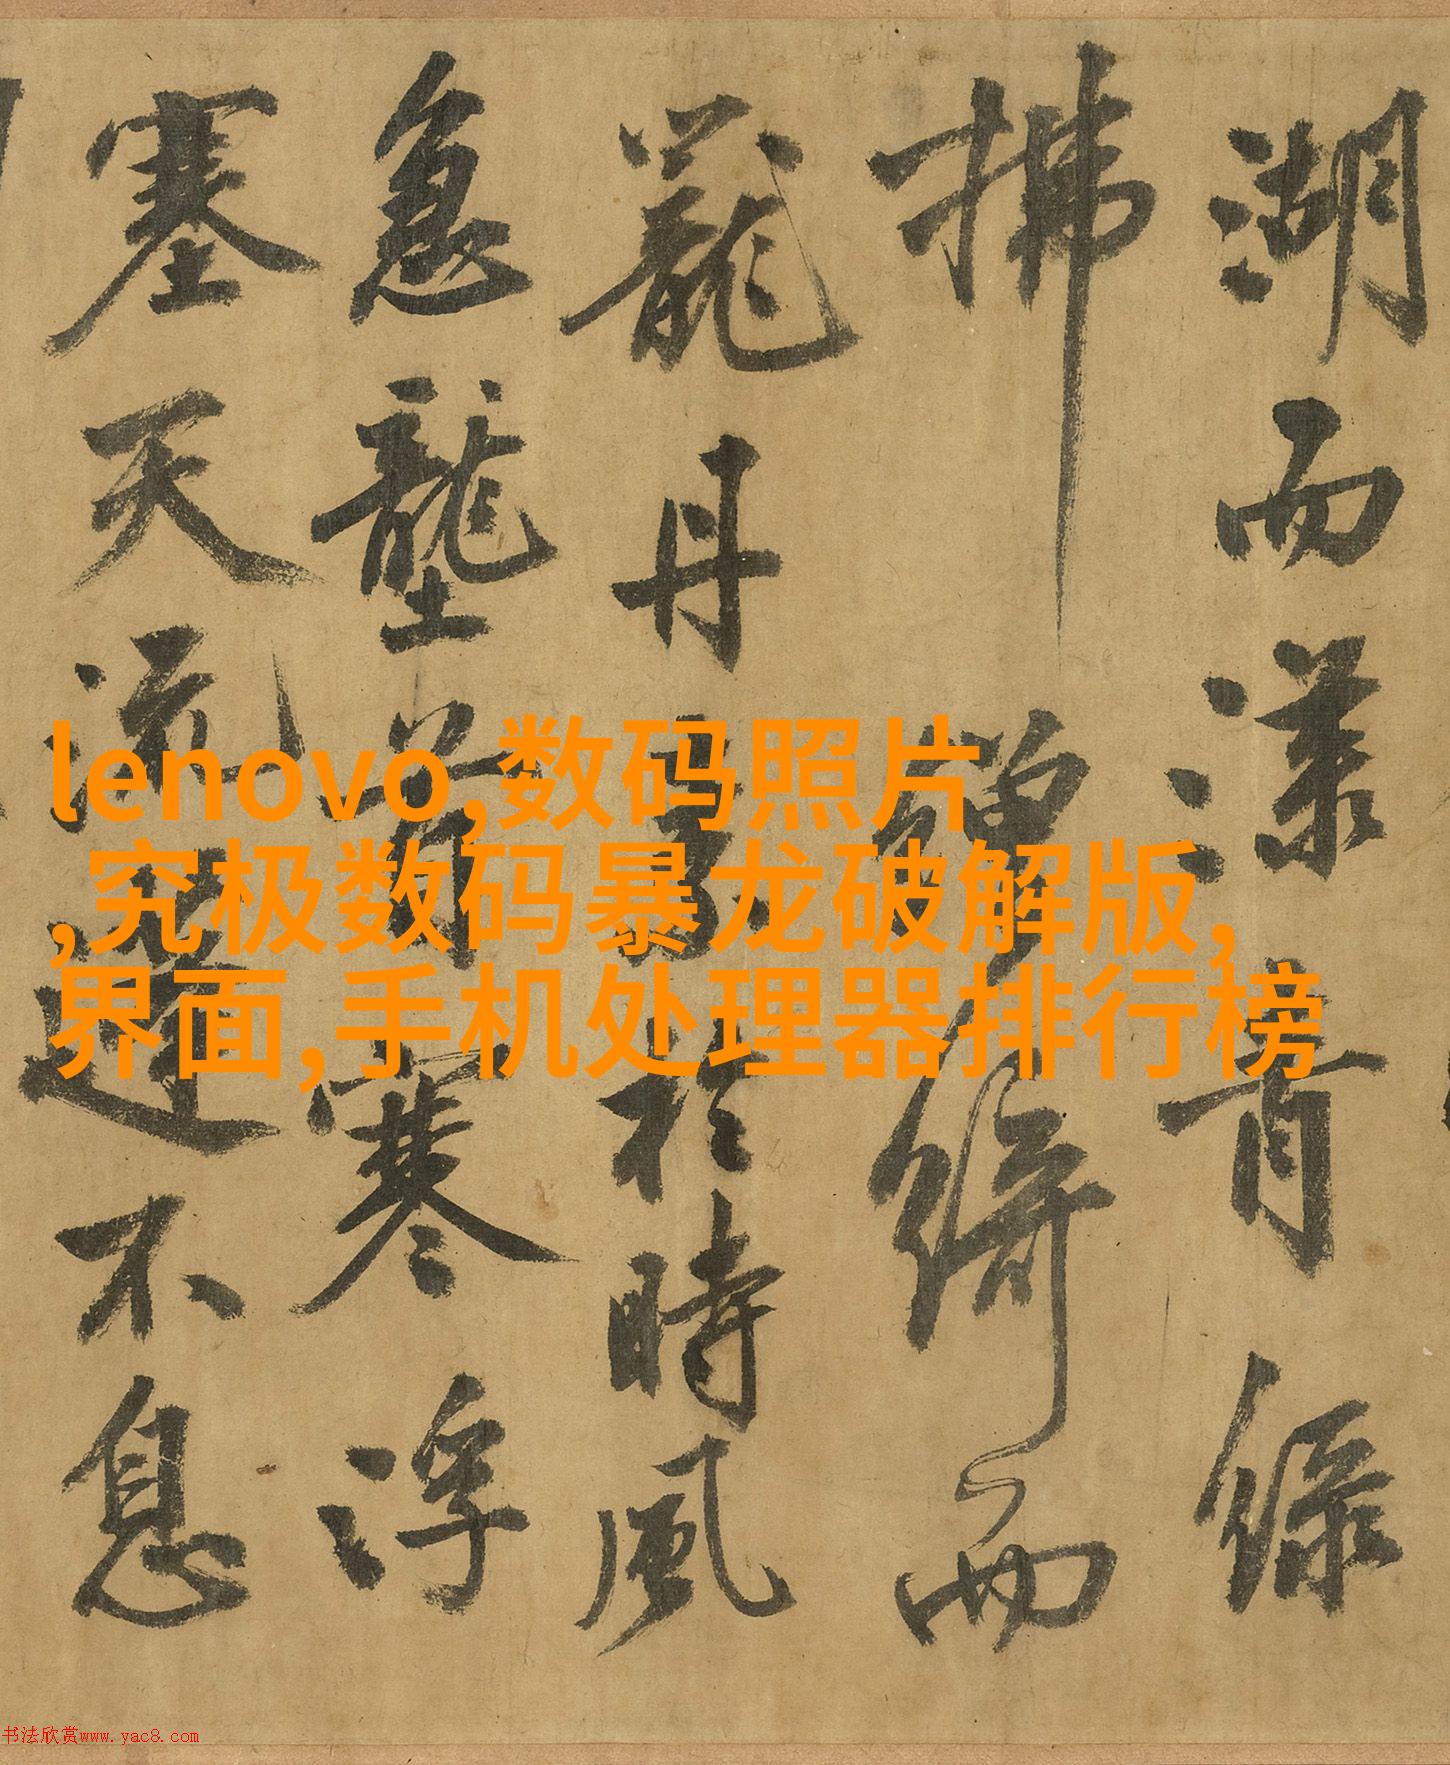 湖而漾青綠
拂綺而
籠丹於時風
急壟首寒浮
塞天流不息
lenovo,数码照片
,究极数码暴龙破解版,
界面,手机处理器排行榜
书法欣赏www.yac8.com